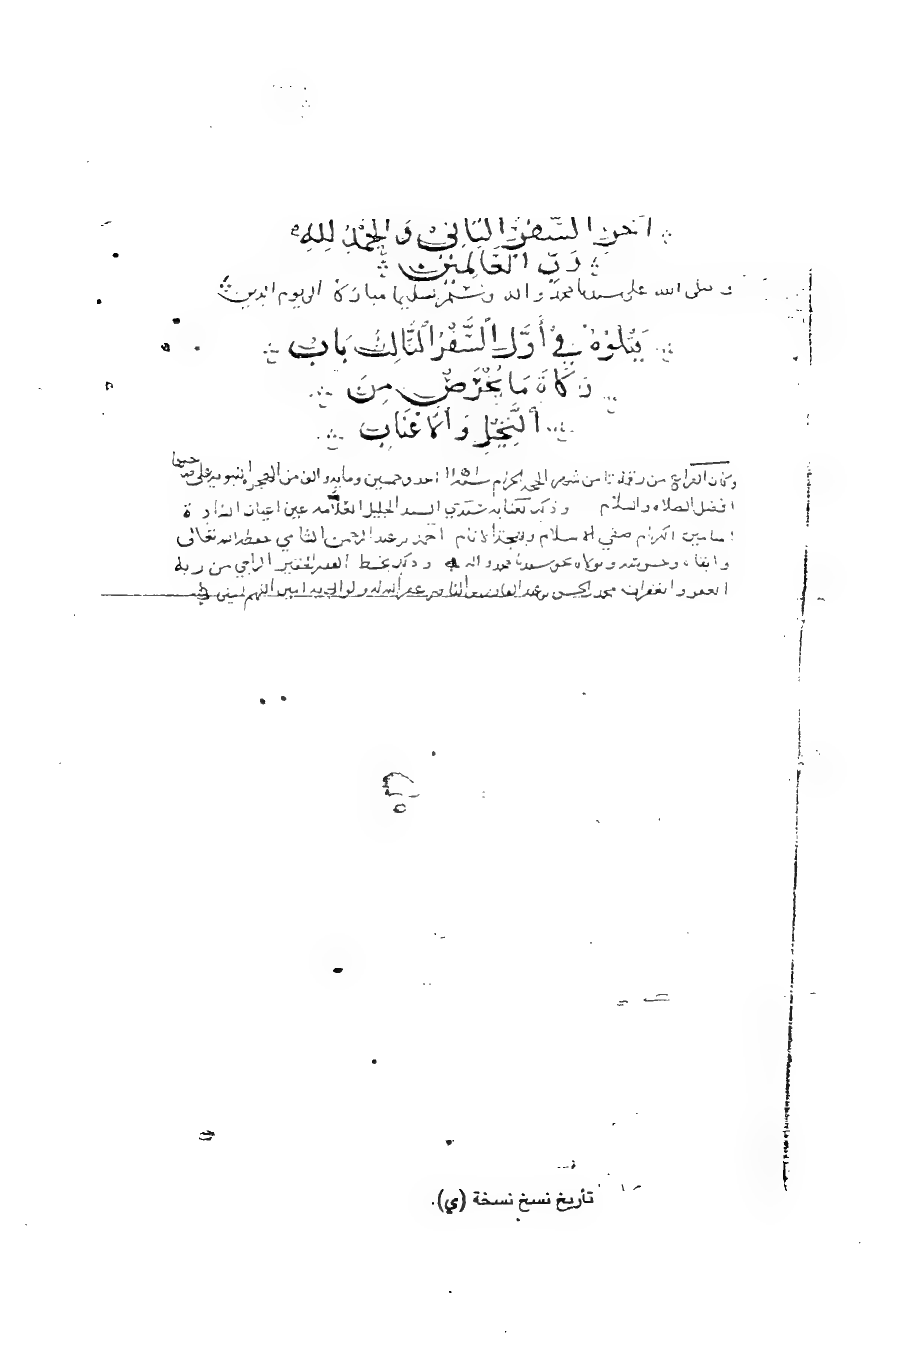 آخر السفر الثاني والحمد لله
رب العالمين
وصلى الله على سيدنا محمد واله وسلم تسليما مباركا الى يوم الدين
يتلوه في أول السفر الثالث باب
زكاة ما يخرص من
النخل والأعناب
وكان الفراغ من شهر الحجة الحرام سنة احد وخمسين ومايه والف من الهجرة النبويه على صاحبها
افضل الصلاه والسلام وذلك بعناية سيدي السيد الجليل العلامه عين اعيان السادة
الميامين الكرام صفي الاسلام الانام احمد بن عبد الرحمن الشامي حفظه الله تعالى
وابقاه سيدنا محمد واله وذلك بخط الفقير الراجي من ربه
العفو والغفران محمد الحسن عبد غفر الله له ولوالديه امين اللهم امين
تأريخ نسخ نسخة (ي).